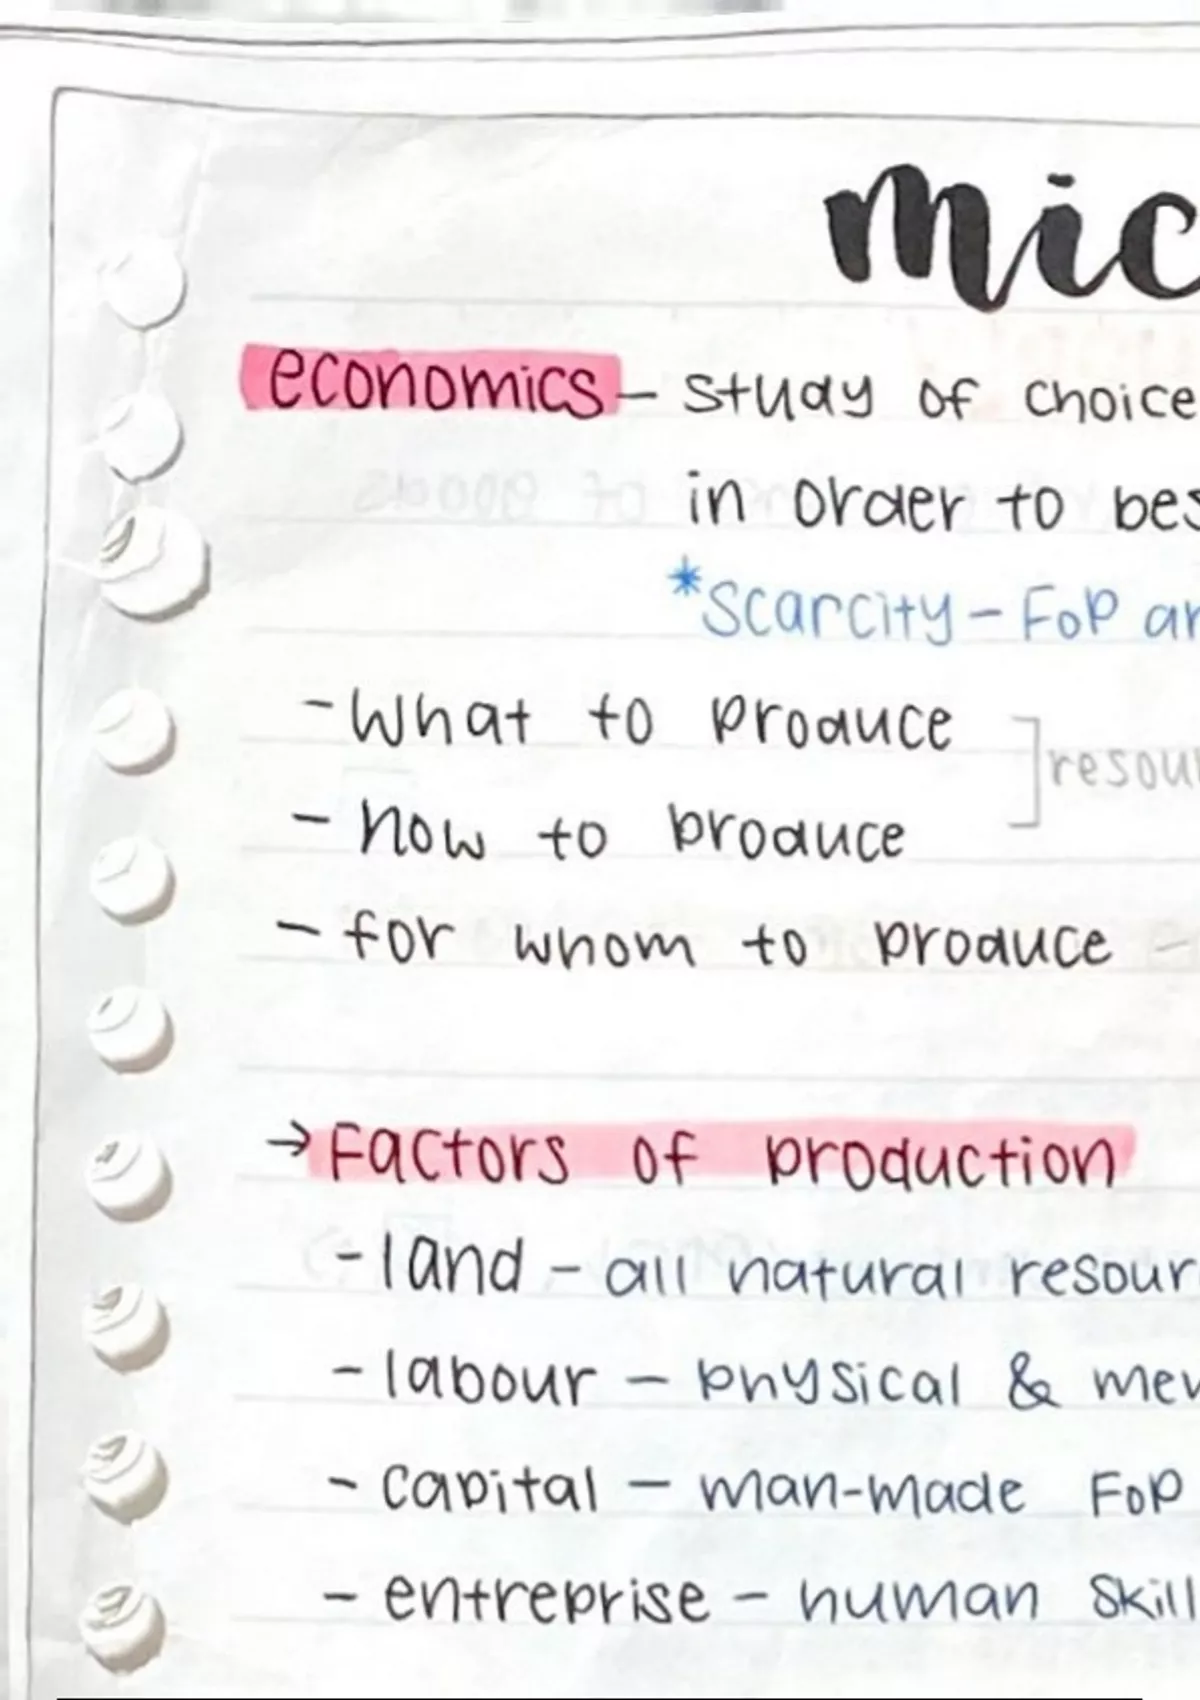 mic
economics - study of choice
in order to bes
*Scarcity - FoP ar
- What to produce
]resour
- how to produce
- for whom to produce -
→ Factors of production
- land - all natural resour
- labour - physical & men
- capital - man-made FoP
- entreprise - human skill